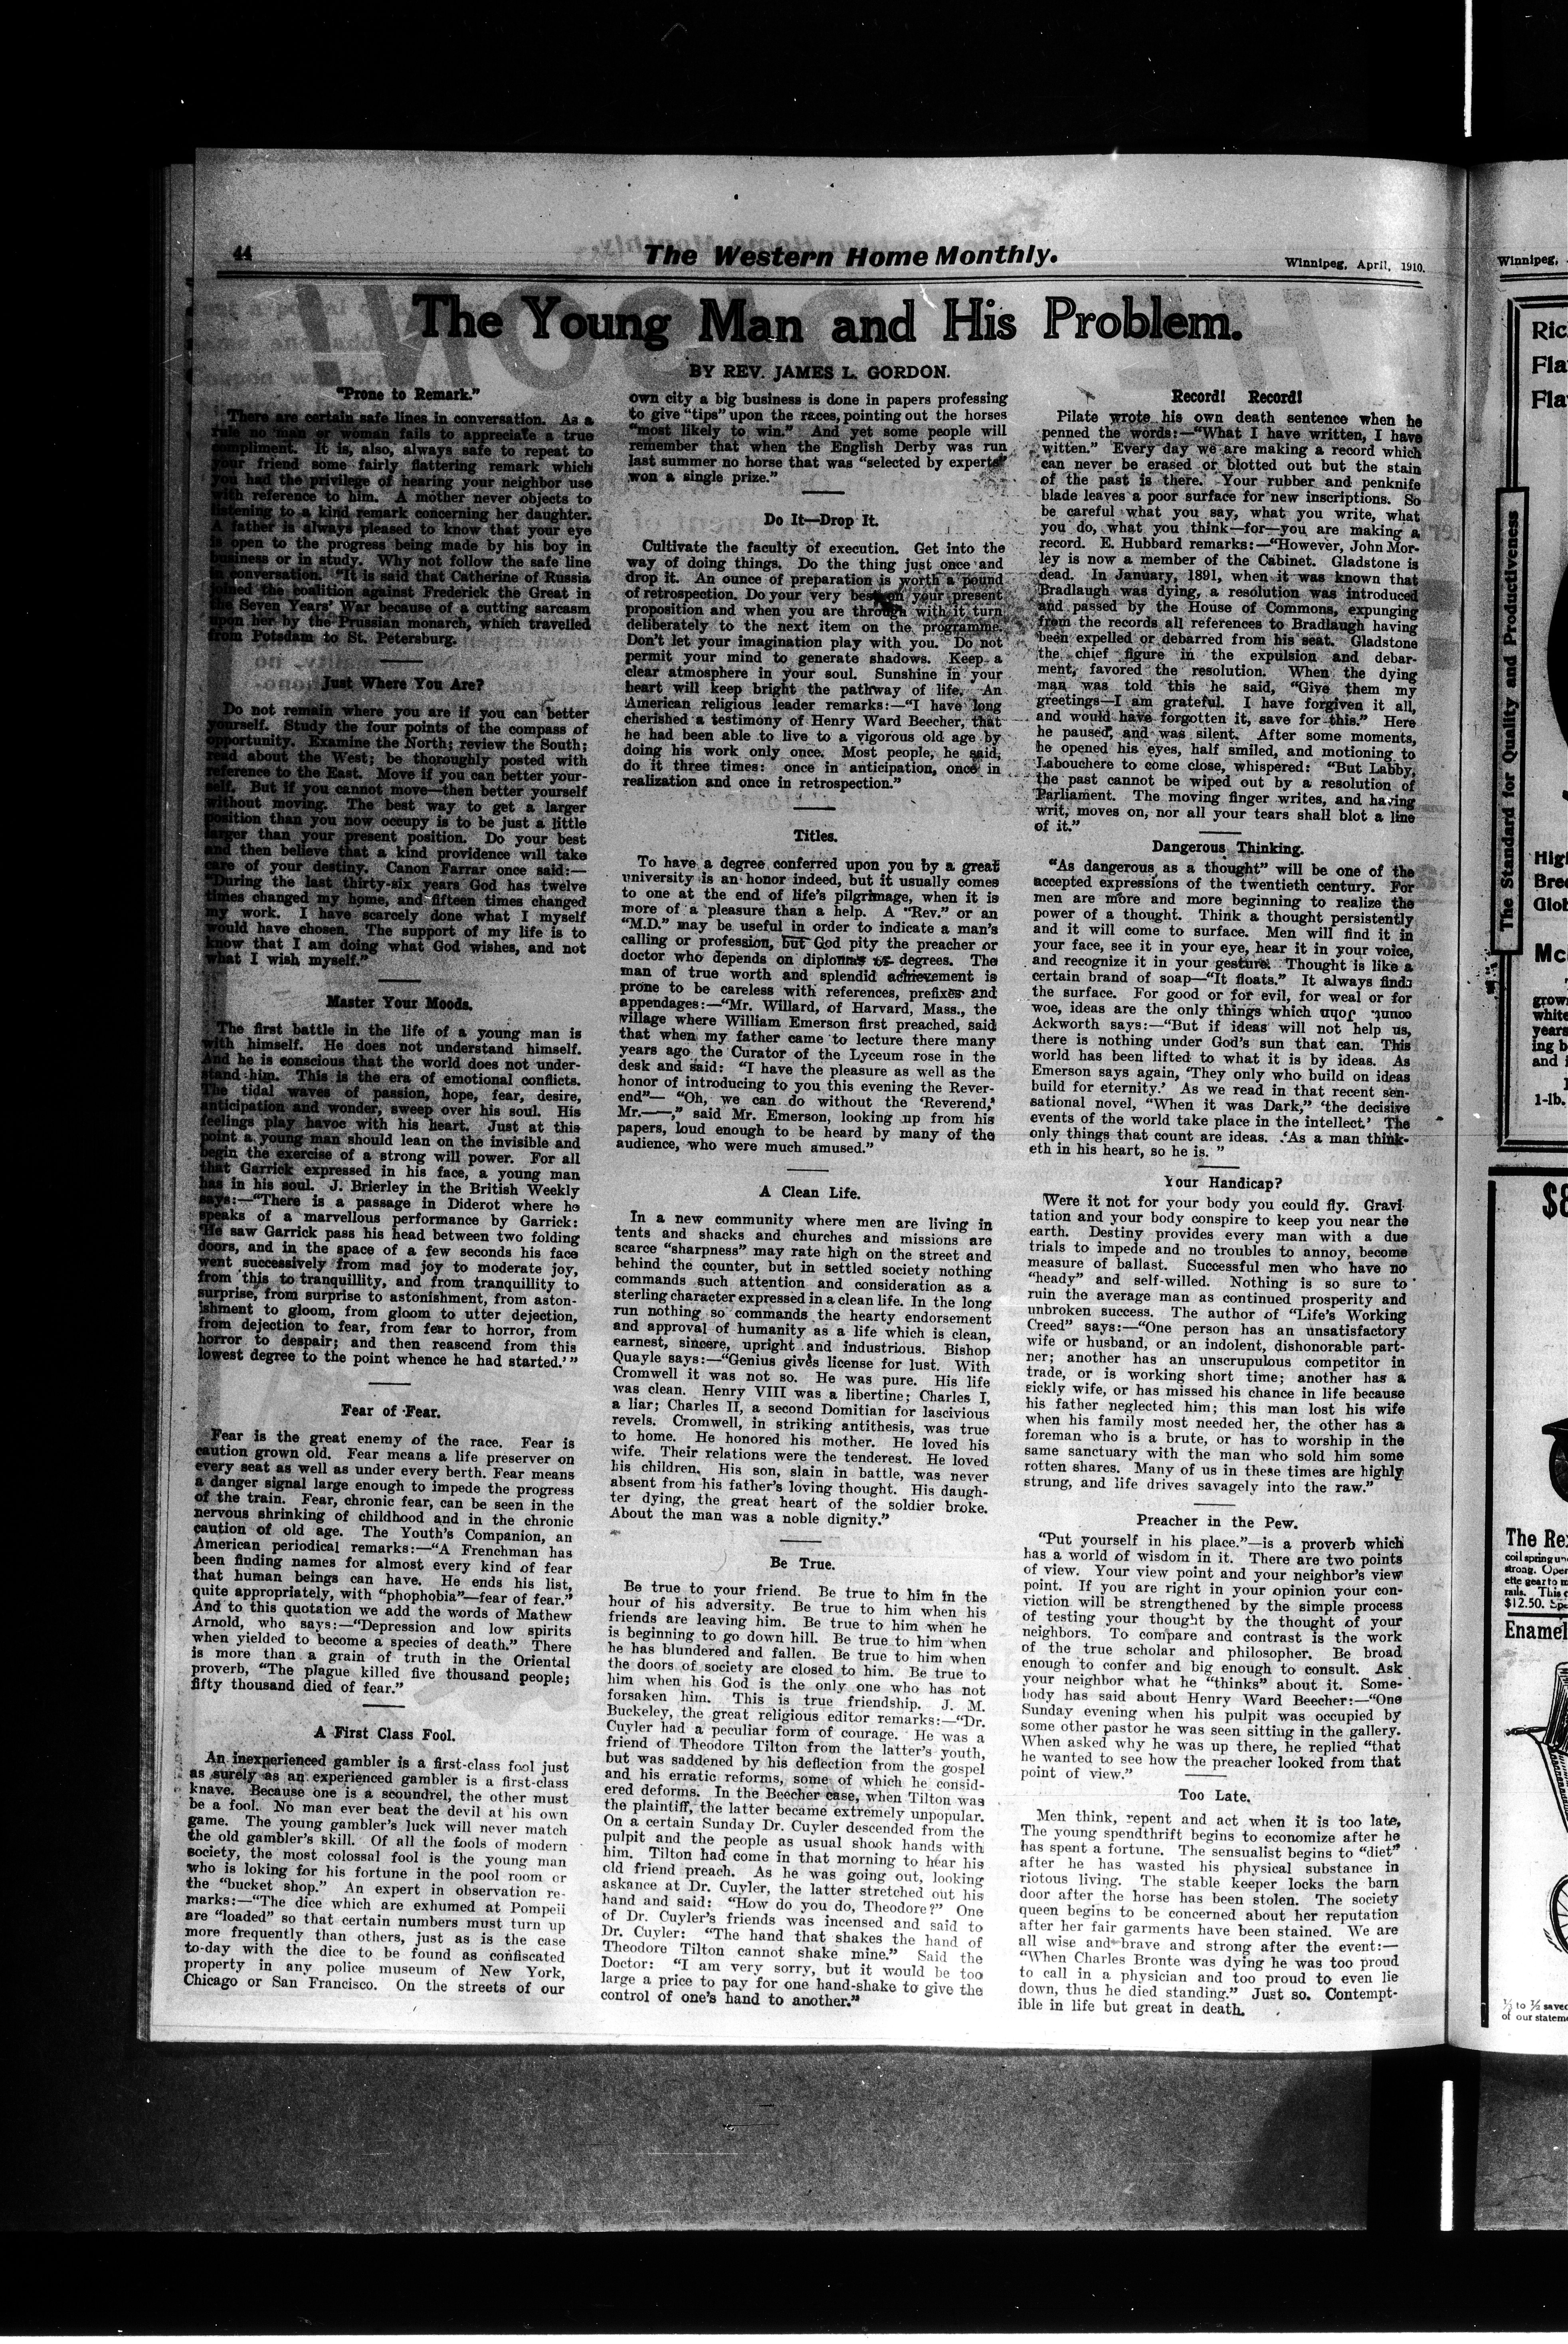 44
The Western Home Monthly.
Winnipeg, April, 1910.
The Young Man and His Problem.
BY REV. JAMES L. GORDON.
"Prone to Remark."
There are certain safe lines in conversation. As a
rule no man or woman fails to appreciate a true
compliment. It is, also, always safe to repeat to
your friend some fairly flattering remark which
you had the privilege of hearing your neighbor use
with reference to him. A mother never objects to
listening to a kind remark concerning her daughter.
A father is always pleased to know that your eye
is open to the progress being made by his boy in
business or in study. Why not follow the safe line
in conversation. "It is said that Catherine of Russia
joined the coalition against Frederick the Great in
the Seven Years' War because of a cutting sarcasm
upon her by the Prussian monarch, which travelled
from Potsdam to St. Petersburg.
Just Where You Are?
Do not remain where you are if you can better
yourself. Study the four points of the compass of
opportunity. Examine the North; review the South;
read about the West; be thoroughly posted with
reference to the East. Move if you can better your-
self. But if you cannot move—then better yourself
without moving. The best way to get a larger
position than you now occupy is to be just a little
larger than your present position. Do your best
and then believe that a kind providence will take
care of your destiny. Canon Farrar once said:—
"During the last thirty-six years God has twelve
times changed my home, and fifteen times changed
my work. I have scarcely done what I myself
would have chosen. The support of my life is to
know that I am doing what God wishes, and not
what I wish myself."
Master Your Moods.
The first battle in the life of a young man is
with himself. He does not understand himself.
And he is conscious that the world does not under-
stand him. This is the era of emotional conflicts.
The tidal waves of passion, hope, fear, desire,
anticipation and wonder, sweep over his soul. His
feelings play havoc with his heart. Just at this
point a young man should lean on the invisible and
begin the exercise of a strong will power. For all
that Garrick expressed in his face, a young man
has in his soul. J. Brierley in the British Weekly
says:—"There is a passage in Diderot where he
speaks of a marvellous performance by Garrick:
'He saw Garrick pass his head between two folding
doors, and in the space of a few seconds his face
went successively from mad joy to moderate joy,
from this to tranquillity, and from tranquillity to
surprise, from surprise to astonishment, from aston-
ishment to gloom, from gloom to utter dejection,
from dejection to fear, from fear to horror, from
horror to despair; and then reascend from this
lowest degree to the point whence he had started.'"
Fear of Fear.
Fear is the great enemy of the race. Fear is
caution grown old. Fear means a life preserver on
every seat as well as under every berth. Fear means
a danger signal large enough to impede the progress
of the train. Fear, chronic fear, can be seen in the
nervous shrinking of childhood and in the chronic
caution of old age. The Youth's Companion, an
American periodical remarks:—"A Frenchman has
been finding names for almost every kind of fear
that human beings can have. He ends his list,
quite appropriately, with "phophobia"—fear of fear."
And to this quotation we add the words of Mathew
Arnold, who says:—"Depression and low spirits
when yielded to become a species of death." There
is more than a grain of truth in the Oriental
proverb, "The plague killed five thousand people;
fifty thousand died of fear."
A First Class Fool.
An inexperienced gambler is a first-class fool just
as surely as an experienced gambler is a first-class
knave. Because one is a scoundrel, the other must
be a fool. No man ever beat the devil at his own
game. The young gambler's luck will never match
the old gambler's skill. Of all the fools of modern
society, the most colossal fool is the young man
who is loking for his fortune in the pool room or
the "bucket shop." An expert in observation re-
marks:—"The dice which are exhumed at Pompeii
are "loaded" so that certain numbers must turn up
more frequently than others, just as is the case
to-day with the dice to be found as confiscated
property in any police museum of New York,
Chicago or San Francisco. On the streets of our
own city a big business is done in papers professing
to give "tips" upon the races, pointing out the horses
"most likely to win." And yet some people will
remember that when the English Derby was run
last summer no horse that was "selected by experts"
won a single prize."
Do It—Drop It.
Cultivate the faculty of execution. Get into the
way of doing things. Do the thing just once and
drop it. An ounce of preparation is worth a pound
of retrospection. Do your very best on your present
proposition and when you are through with it turn
deliberately to the next item on the programme.
Don't let your imagination play with you. Do not
permit your mind to generate shadows. Keep a
clear atmosphere in your soul. Sunshine in your
heart will keep bright the pathway of life. An
American religious leader remarks:—"I have long
cherished a testimony of Henry Ward Beecher, that
he had been able to live to a vigorous old age by
doing his work only once. Most people, he said,
do it three times: once in anticipation, once in
realization and once in retrospection."
Titles.
To have a degree conferred upon you by a great
university is an honor indeed, but it usually comes
to one at the end of life's pilgrimage, when it is
more of a pleasure than a help. A "Rev." or an
"M.D." may be useful in order to indicate a man's
calling or profession, but God pity the preacher or
doctor who depends on diplomas or degrees. The
man of true worth and splendid achievement is
prone to be careless with references, prefixes and
appendages:—"Mr. Willard, of Harvard, Mass., the
village where William Emerson first preached, said
that when my father came to lecture there many
years ago the Curator of the Lyceum rose in the
desk and said: "I have the pleasure as well as the
honor of introducing to you this evening the Rever-
end"— "Oh, we can do without the 'Reverend,'
Mr.——," said Mr. Emerson, looking up from his
papers, loud enough to be heard by many of the
audience, who were much amused."
A Clean Life.
In a new community where men are living in
tents and shacks and churches and missions are
scarce "sharpness" may rate high on the street and
behind the counter, but in settled society nothing
commands such attention and consideration as a
sterling character expressed in a clean life. In the long
run nothing so commands the hearty endorsement
and approval of humanity as a life which is clean,
earnest, sincere, upright and industrious. Bishop
Quayle says:—"Genius gives license for lust. With
Cromwell it was not so. He was pure. His life
was clean. Henry VIII was a libertine; Charles I,
a liar; Charles II, a second Domitian for lascivious
revels. Cromwell, in striking antithesis, was true
to home. He honored his mother. He loved his
wife. Their relations were the tenderest. He loved
his children. His son, slain in battle, was never
absent from his father's loving thought. His daugh-
ter dying, the great heart of the soldier broke.
About the man was a noble dignity."
Be True.
Be true to your friend. Be true to him in the
hour of his adversity. Be true to him when his
friends are leaving him. Be true to him when he
is beginning to go down hill. Be true to him when
he has blundered and fallen. Be true to him when
the doors of society are closed to him. Be true to
him when his God is the only one who has not
forsaken him. This is true friendship. J. M.
Buckeley, the great religious editor remarks:—"Dr.
Cuyler had a peculiar form of courage. He was a
friend of Theodore Tilton from the latter's youth,
but was saddened by his deflection from the gospel
and his erratic reforms, some of which he consid-
ered deforms. In the Beecher case, when Tilton was
the plaintiff, the latter became extremely unpopular.
On a certain Sunday Dr. Cuyler descended from the
pulpit and the people as usual shook hands with
him. Tilton had come in that morning to hear his
old friend preach. As he was going out, looking
askance at Dr. Cuyler, the latter stretched out his
hand and said: "How do you do, Theodore?" One
of Dr. Cuyler's friends was incensed and said to
Dr. Cuyler: "The hand that shakes the hand of
Theodore Tilton cannot shake mine." Said the
Doctor: "I am very sorry, but it would be too
large a price to pay for one hand-shake to give the
control of one's hand to another."
Record! Record!
Pilate wrote his own death sentence when he
penned the words:—"What I have written, I have
witten." Every day we are making a record which
can never be erased or blotted out but the stain
of the past is there. Your rubber and penknife
blade leaves a poor surface for new inscriptions. So
be careful what you say, what you write, what
you do, what you think—for—you are making a
record. E. Hubbard remarks:—"However, John Mor-
ley is now a member of the Cabinet. Gladstone is
dead. In January, 1891, when it was known that
Bradlaugh was dying, a resolution was introduced
and passed by the House of Commons, expunging
from the records all references to Bradlaugh having
been expelled or debarred from his seat. Gladstone
the chief figure in the expulsion and debar-
ment, favored the resolution. When the dying
man was told this he said, "Give them my
greetings—I am grateful. I have forgiven it all,
and would have forgotten it, save for this." Here
he paused, and was silent. After some moments,
he opened his eyes, half smiled, and motioning to
Labouchere to come close, whispered: "But Labby,
the past cannot be wiped out by a resolution of
Parliament. The moving finger writes, and having
writ, moves on, nor all your tears shall blot a line
of it."
Dangerous Thinking.
"As dangerous as a thought" will be one of the
accepted expressions of the twentieth century. For
men are more and more beginning to realize the
power of a thought. Think a thought persistently
and it will come to surface. Men will find it in
your face, see it in your eye, hear it in your voice,
and recognize it in your gesture. Thought is like a
certain brand of soap—"It floats." It always finds
the surface. For good or for evil, for weal or for
woe, ideas are the only things which count. John
Ackworth says:—"But if ideas will not help us,
there is nothing under God's sun that can. This
world has been lifted to what it is by ideas. As
Emerson says again, 'They only who build on ideas
build for eternity.' As we read in that recent sen-
sational novel, "When it was Dark," 'the decisive
events of the world take place in the intellect.' The
only things that count are ideas. 'As a man think-
eth in his heart, so he is. "
Your Handicap?
Were it not for your body you could fly. Gravi-
tation and your body conspire to keep you near the
earth. Destiny provides every man with a due
trials to impede and no troubles to annoy, become
measure of ballast. Successful men who have no
"heady" and self-willed. Nothing is so sure to
ruin the average man as continued prosperity and
unbroken success. The author of "Life's Working
Creed" says:—"One person has an unsatisfactory
wife or husband, or an indolent, dishonorable part-
ner; another has an unscrupulous competitor in
trade, or is working short time; another has a
sickly wife, or has missed his chance in life because
his father neglected him; this man lost his wife
when his family most needed her, the other has a
foreman who is a brute, or has to worship in the
same sanctuary with the man who sold him some
rotten shares. Many of us in these times are highly
strung, and life drives savagely into the raw."
Preacher in the Pew.
"Put yourself in his place."—is a proverb which
has a world of wisdom in it. There are two points
of view. Your view point and your neighbor's view
point. If you are right in your opinion your con-
viction will be strengthened by the simple process
of testing your thought by the thought of your
neighbors. To compare and contrast is the work
of the true scholar and philosopher. Be broad
enough to confer and big enough to consult. Ask
your neighbor what he "thinks" about it. Some-
body has said about Henry Ward Beecher:—"One
Sunday evening when his pulpit was occupied by
some other pastor he was seen sitting in the gallery.
When asked why he was up there, he replied "that
he wanted to see how the preacher looked from that
point of view."
Too Late.
Men think, repent and act when it is too late,
The young spendthrift begins to economize after he
has spent a fortune. The sensualist begins to "diet"
after he has wasted his physical substance in
riotous living. The stable keeper locks the barn
door after the horse has been stolen. The society
queen begins to be concerned about her reputation
after her fair garments have been stained. We are
all wise and brave and strong after the event:—
"When Charles Bronte was dying he was too proud
to call in a physician and too proud to even lie
down, thus he died standing." Just so. Contempt-
ible in life but great in death.
Winnipeg,
Ric
Fla
Fla
The Standard for Quality and Productiveness
High
Bree
Glob
Mc
grow
white
years
ing b
and
1-lb.
$8
The Re
coil spring
strong. Oper
ette gear to
rails. This
$12.50. Spe
Enamel
½ to ½ saved
of our statem